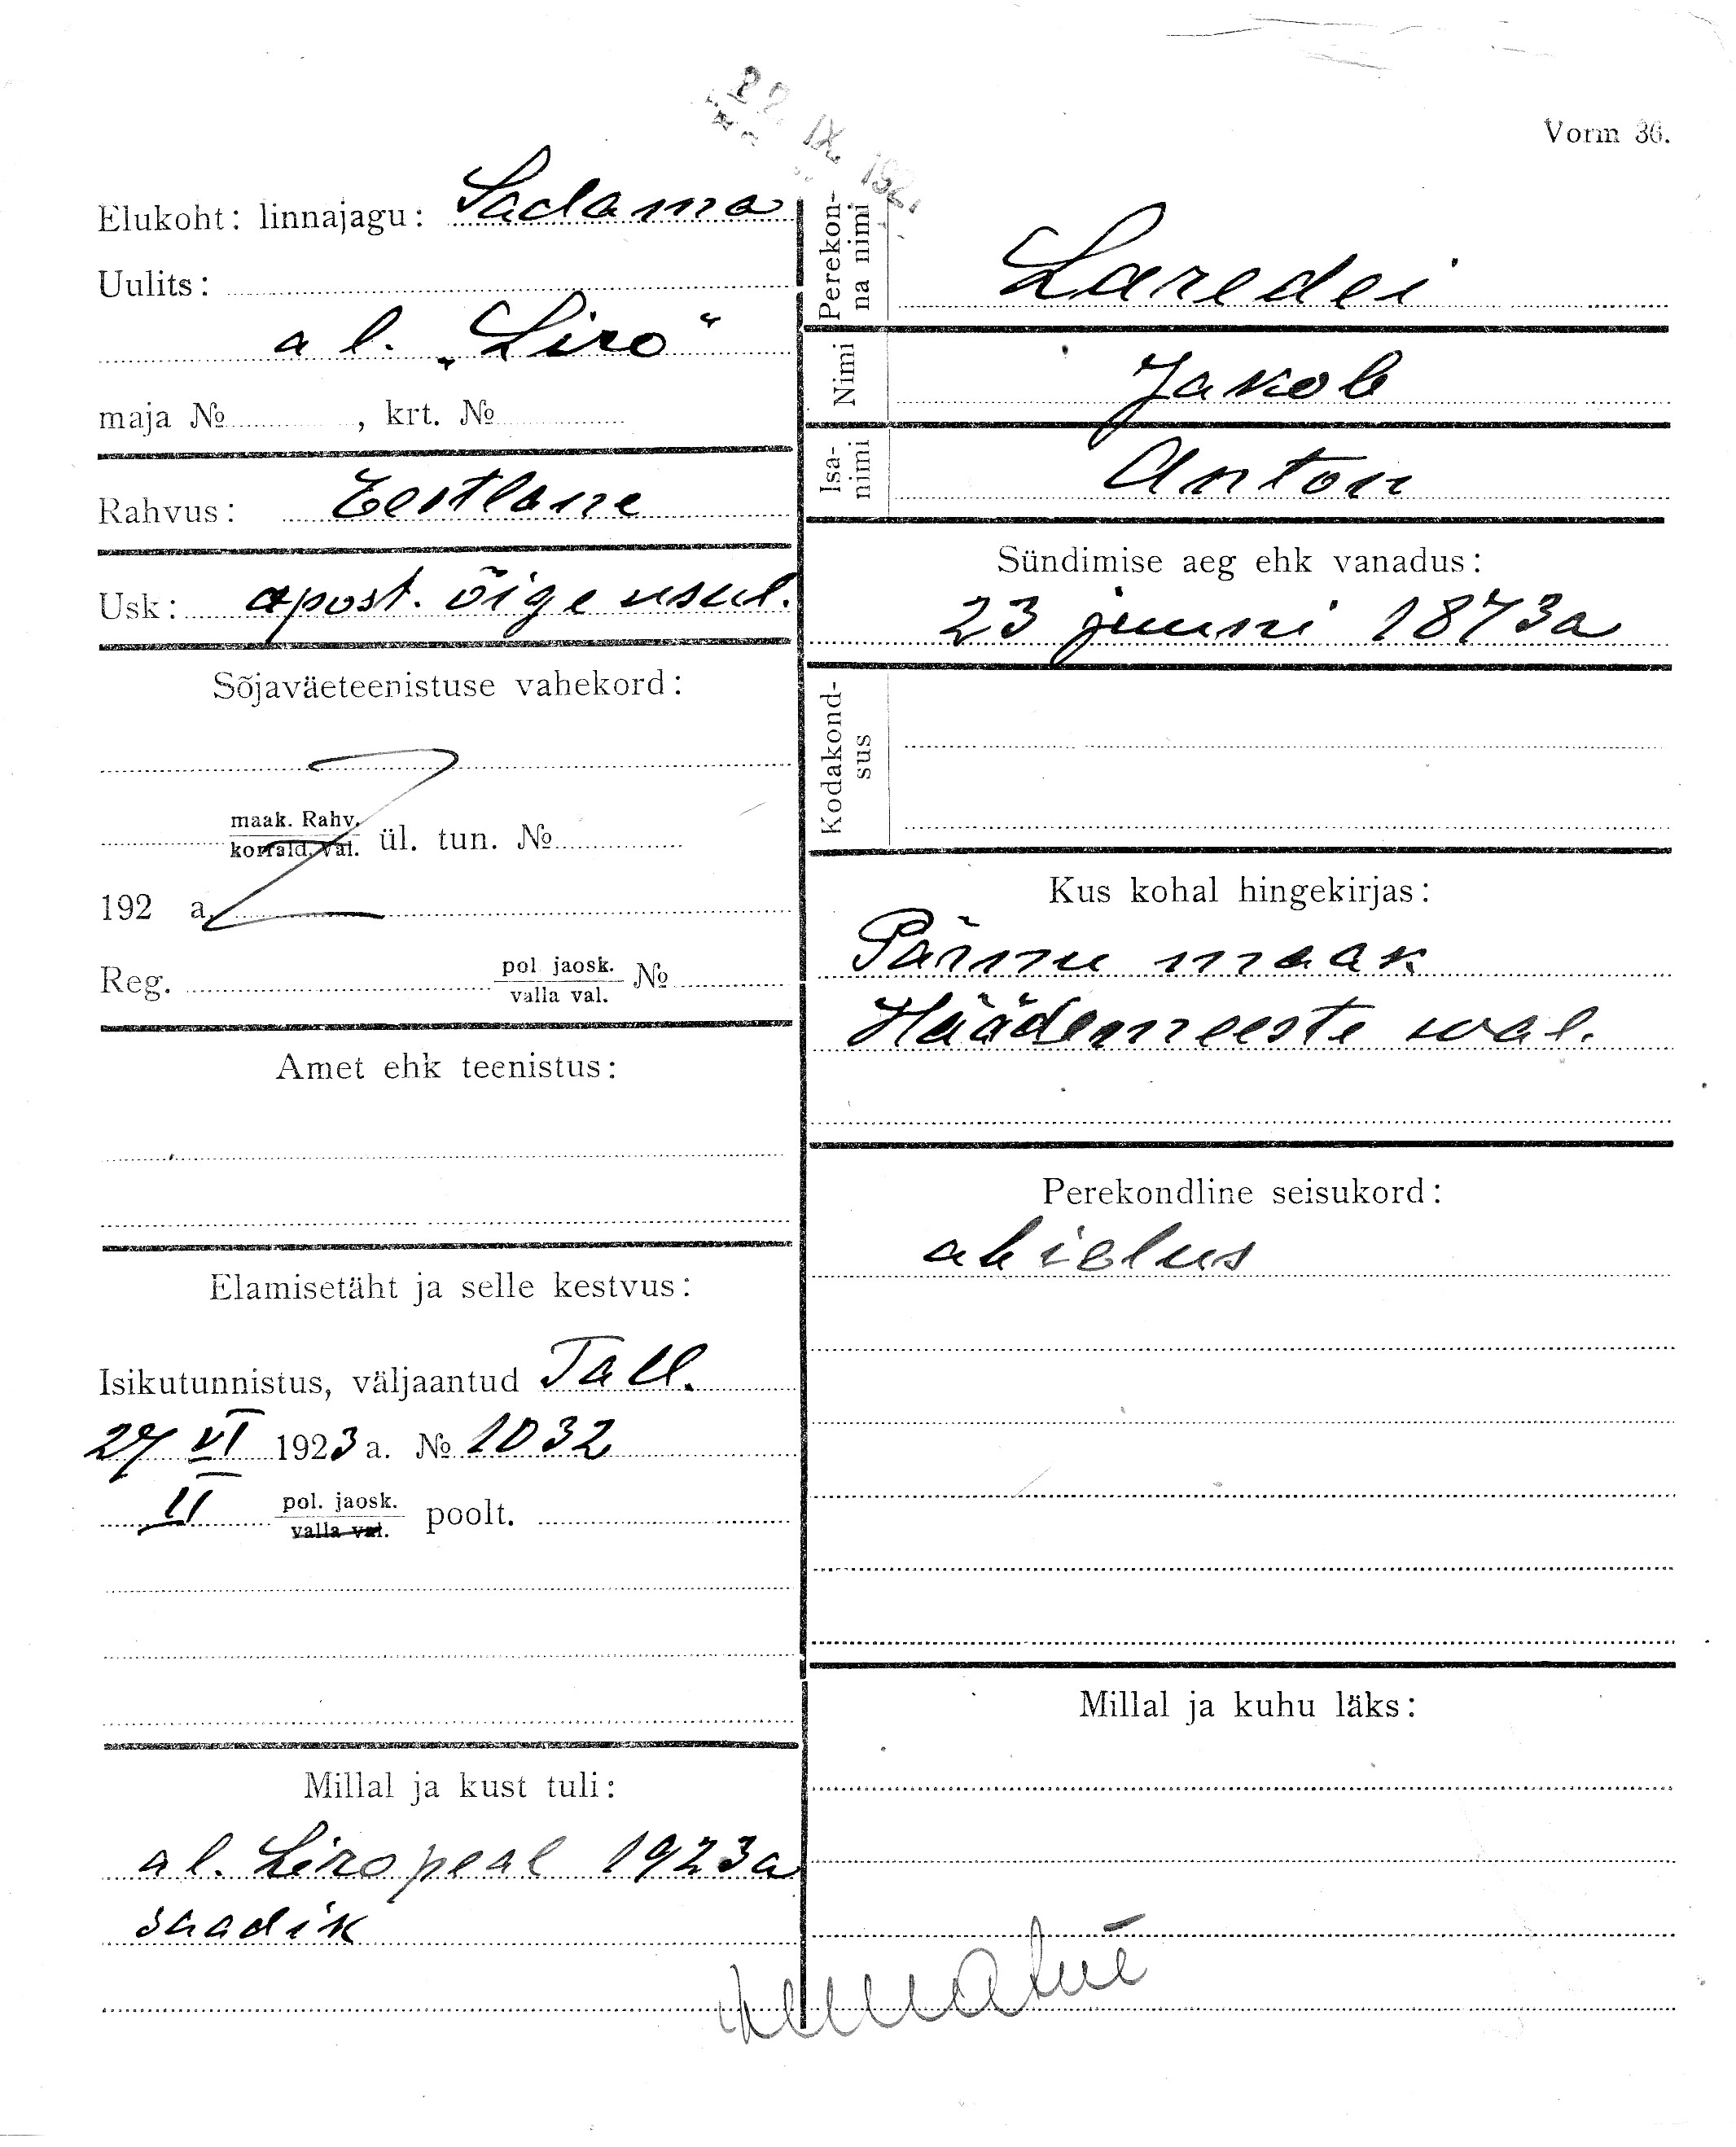 Vorm 36.
Elukoht: linnajagu: Sadama
Uulits:
al. „Liro“
maja № , krt. №
Rahvus: Eestlane
Usk: apost. õige usul.
Sõjaväeteenistuse vahekord:
maak. Rahv.
korrald. val. ül. tun. №
192 a.
Reg. pol. jaosk. №
valla val.
Amet ehk teenistus:
Elamisetäht ja selle kestvus:
Isikutunnistus, väljaantud Tall.
27 VI 1923 a. № 1032
II pol. jaosk. poolt.
valla val.
Millal ja kust tuli:
al. Liro peal 1923a
saadik
Perekon-
na nimi
Laredei
Nimi Jakob
Isa-
nimi
Anton
Sündimise aeg ehk vanadus:
23 juuni 1873a
Kodakond-
sus
Kus kohal hingekirjas:
Pärnu maak
Häädemeeste wal.
Perekondline seisukord:
abielus
Millal ja kuhu läks: